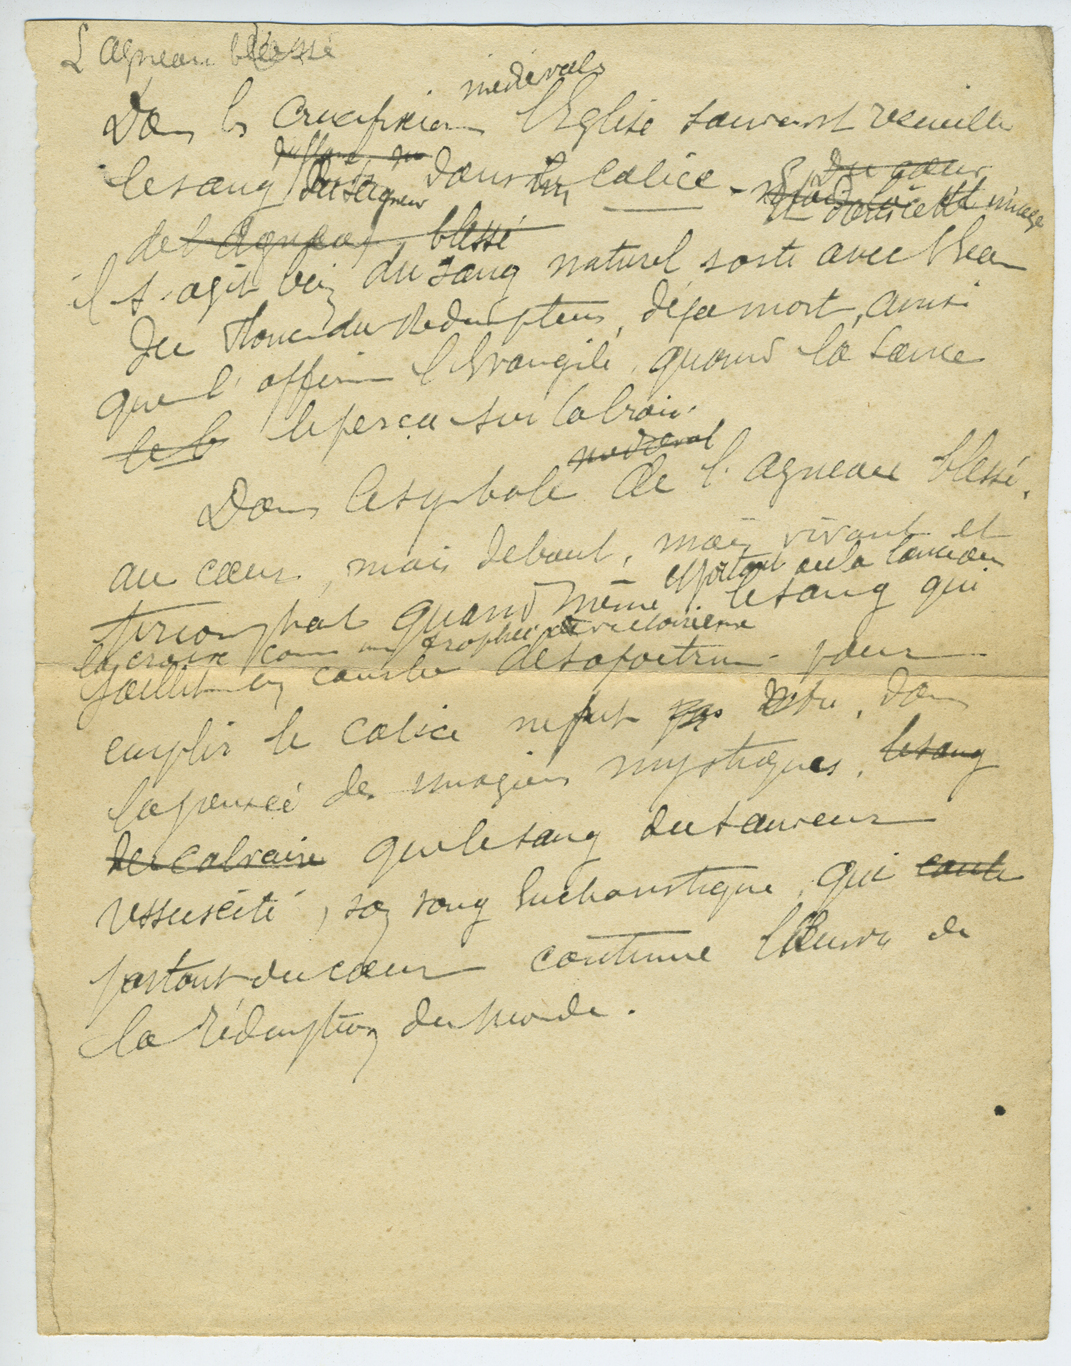 L'agneau blessé
médievals
Dans les crucifixions l'Eglise souvent recueille
du flanc
le sang du Seigneur dans un calice - du cœur
dans cette image
de l'agneau blessé
il s'agit bien du sang naturel sorti avec l'eau
du flanc du Rédempteur, déja mort, ainsi
que l'affirme l'Evangile, quand la lance
le perça sur la croix.
médieval
Dans le symbole de l'agneau blessé,
au cœur, mais debout, mais vivant et
portant ou la lance ou
triomphant quand même le sang qui
la croix comme un trophée de victoire
jaillit en courbe de sa poitrine pour
emplir le calice ne fut pas dans
la pensée des imagiers mystiques, le sang
du calvaire que le sang du Sauveur
ressuscité, son sang Eucharistique, qui coule
partout du cœur continue l'Œuvre de
la rédemption du monde.